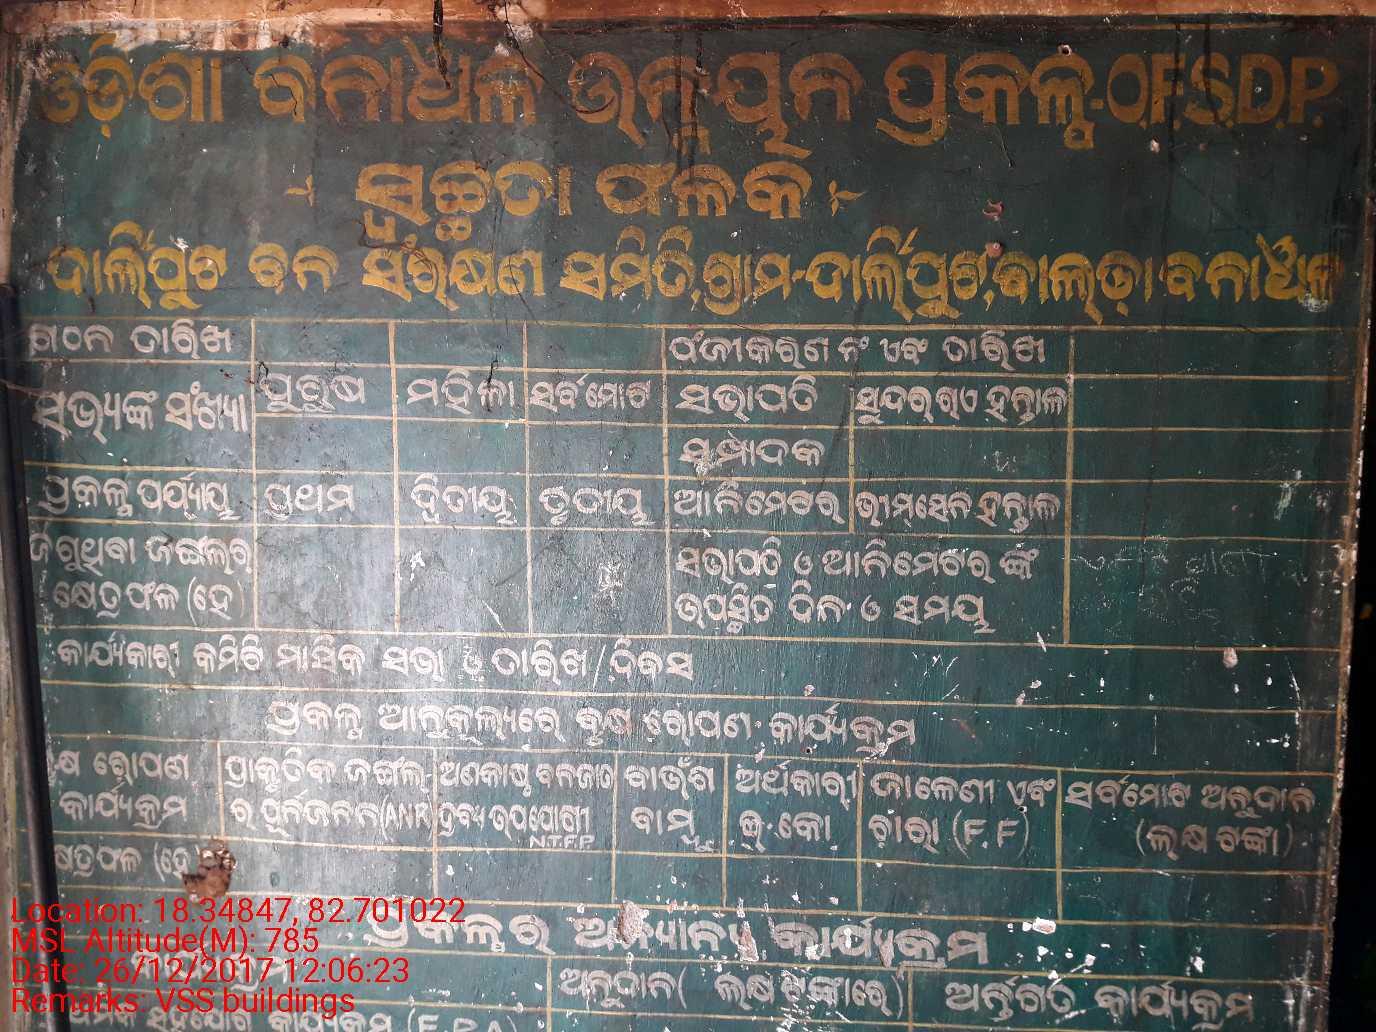 ଓଡ଼ିଶା ବନାଞ୍ଚଳ ଉନ୍ନୟନ ପ୍ରକଳ୍ପ-O.F.S.D.P.
ସ୍ୱଚ୍ଛତା ଫଳକ
ଦାର୍ଲିପୁଟ ବନ ସଂରକ୍ଷଣ ସମିତି,ଗ୍ରାମ-ଦାର୍ଲିପୁଟ,ବାଲ୍‌ଡ଼ା ବନାଞ୍ଚଳ
ଗଠନ ତାରିଖ ପଂଜୀକରଣ ନଂ ଏବଂ ତାରିଖ
ସଭ୍ୟଙ୍କ ସଂଖ୍ୟା ପୁରୁଷ ମହିଳା ସର୍ବମୋଟ ସଭାପତି ସୁନ୍ଦର୍ ରାଏ ହନ୍ତାଳ
ସମ୍ପାଦକ
ପ୍ରକଳ୍ପ ପର୍ଯ୍ୟାୟ ପ୍ରଥମ ଦ୍ୱିତୀୟ ତୃତୀୟ ଆନିମେଟର୍ ଭୀମ୍‌ସେନ ହନ୍ତାଳ
ନିଆଯାଇଥିବା ଜଙ୍ଗଲର ସଭାପତି ଓ ଆନିମେଟର୍ ଙ୍କ
କ୍ଷେତ୍ରଫଳ (ହେ) ଉପସ୍ଥିତ ଦିନ ଓ ସମୟ
କାର୍ଯ୍ୟକାରୀ କମିଟି ମାସିକ ସଭା ଓ ତାରିଖ/ଦିବସ
ପ୍ରକଳ୍ପ ଆନୁକୂଲ୍ୟରେ ବୃକ୍ଷ ରୋପଣ କାର୍ଯ୍ୟକ୍ରମ
ରୋପଣ ପ୍ରାକୃତିକ ଜଙ୍ଗଲ୍ ଅଣକାଷ୍ଠ ବନଜାତ ବାଉଁଶ ଅର୍ଥକାରୀ ଜାଳେଣୀ ଏବଂ ସର୍ବମୋଟ ଅନୁଦାନ
କାର୍ଯ୍ୟକ୍ରମ ର ପୂର୍ନଜନନ(ANR) ଦ୍ରବ୍ୟ ଉପଯୋଗୀ ବାମ୍ଫୁ ଇ.କୋ ଚାରା (F.F) (ଲକ୍ଷ ଟଙ୍କା)
N.T.F.P
(ହେ)
ପ୍ରକଳ୍ପର ଅନ୍ୟାନ୍ୟ କାର୍ଯ୍ୟକ୍ରମ
ଅନୁଦାନ( ଲକ୍ଷ ଟଙ୍କାରେ) ଅର୍ନ୍ତଗତ କାର୍ଯ୍ୟକ୍ରମ
ସହଯୋଗ କାର୍ଯ୍ୟକ୍ରମ (E.P.A)
Location: 18.34847, 82.701022
MSL Altitude(M): 785
Date: 26/12/2017 12:06:23
Remarks: VSS buildings